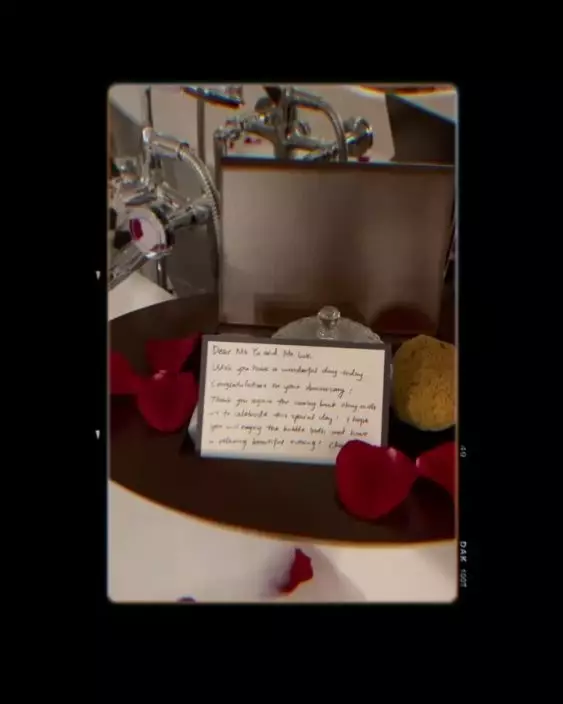 Dear Ms Yu and Mr Luk
Wish you have a wonderful day today
Congratulations on your anniversary!
Thank you again for coming back staying with
us to celebrate this special day! I hope
you will enjoy the bubble bath and have
a relaxing beautiful evening!
49
DAK 1007